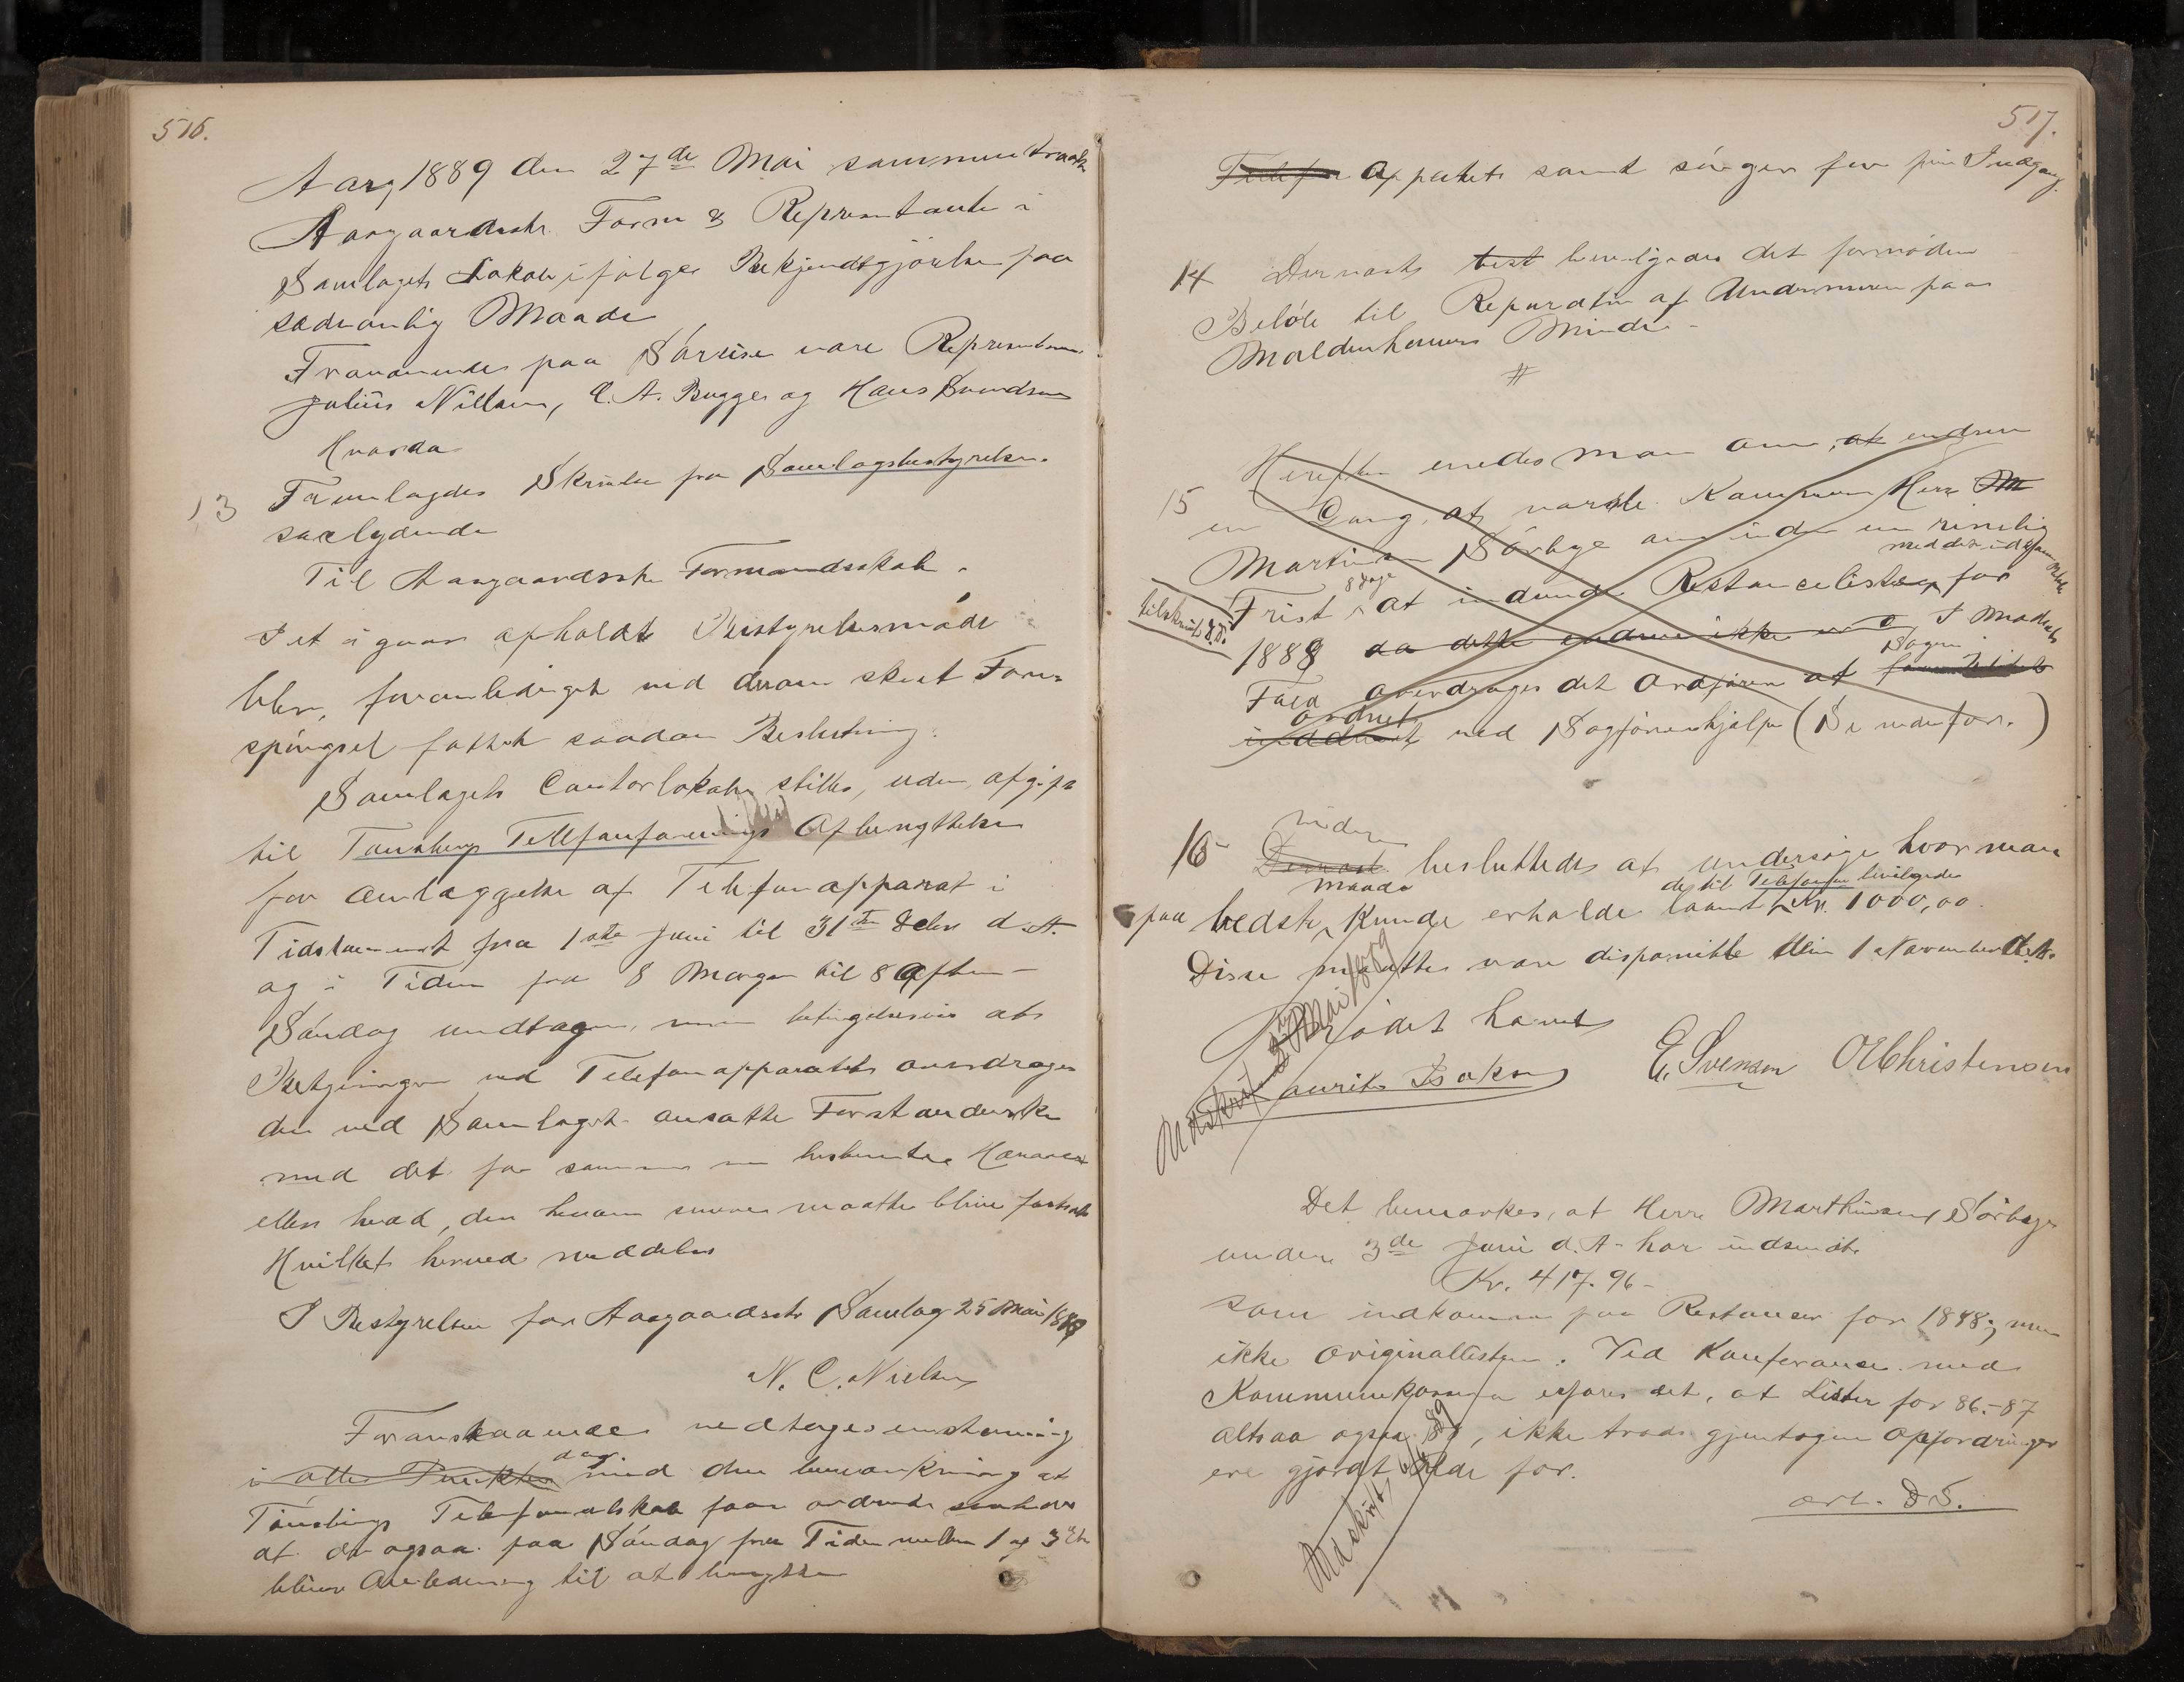 516.
Aar 1889 den 27de Mai sammentraadte
Aasgaardsstr. Form & Representante i
Samlagets Lokale ifølge Bekjendtgjørelse paa
sædvanlig Maade
Fraværende paa Såreise vare Represent
Julius Nilsen, C. A. Bugge og Hans Svendsen
Hvorda
13 Fremlagdes Skrivelse fra Samlagsbestyrelsen
saalydende
Til Aasgaardsstr Formandsskab.
I et i gaar afholdt Bestyrelsesmøde
blev, foranlediget ved derom skeet Fore-
spörgsel fattet saadan Beslutning:
Samlagets Contorlokale stilles, uden afgift
til Tønsbergs Tellfonforenings Afbenyttelse
for Anlæggelse af Telefonapparat i
Tidsrummet fra 1ste Juni til 31te Debr d. A.
og i Tiden fra 8 Morgen til 8 Aften –
Søndag undtagen, men betingelsesvis at
Betjeningen ved Telefonapparatet overdrages
den ved Samlaget ansatte Forstanderske
med det for samme nu bestemte Honorar
eller hvad, der herom senere maatte blive fastsat
Hvilket herved meddeles
I Bestyrelsen for Aasgaardsstr Samlag 25 Mai 1889
N. C. Nielsen
Foranstaaende vedtages enstemmig
i alle Punkter dog med den bemærkning at
Tönsbergs Telefonselskab faar ordnet
at der ogsaa paa Söndag fra Tiden mellem 1 og 3 Em
bliver Anledning til at benytte
517.
Telefon Apparatet samt sörger for fri Indgang.
14 Dernæst bevilgedes det fornødne
Beløb til Reparation af Undermuren paa
Moldenhauers Minde –
#
15 Herefter enedes man om, at endnu
en Gang, at varsle Kæmneren Herr M
Martinsen Sörbye om inden en rimelig
Frist 8 dage at indsende Restancelisten for
med der
tilskrevet
1888 da dette endnu ikke I Modsat
Fald overdrages det Ordføren at Sagen
ordnet
ved Sagførerhjælp (Se nedenfor.)
16 Dernæst videre besluttedes at undersøge hvor man
paa bedste Maade kunde erholde laant de til Telefonen bevilgede Kr. 1000,00.
Disse maatte være disponible den 1 November d. A.
Mødet hævet
Laurits Isaksen E. Svensen O Christensen
Udskrift Mai 1889
Det bemærkes, at Herr Marthinsen Sörbye
under 3de Juni d. A. har indsendt
Kr. 417.96 –
som indkomne paa Restancer for 1888; men
ikke Originallisten. Ved Konferance med
Kommunekasserer erfares det, at Lister for 86.–87
altsaa ogsaa 88, ikke trods gjentagne Opfordringer
ere gjordt Rede for.
Udskrift 89
ord. D S.